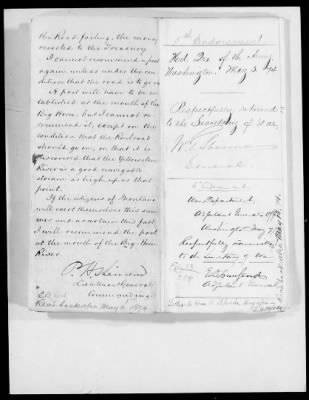 the Road failing, the money
reverted to the Treasury.
I cannot recommend a post
again unless under the con-
dition that the road is to go on
A post will have to be es-
tablished at the mouth of the
Big Horn, but I cannot re-
commend it, except on the
condition that the Railroad
should go on, or that it is
discovered that the Yellowstone
River is a good navigable
stream as high up as that
point.
If the citizens of Montana
will exert themselves this sum-
mer and ascertain this fact
I will recommend the post
at the mouth of the Big Horn
River.
P. H. Sheridan
Lieutenant General
Commanding
Rec'd back
May 6, 1874
5th Endorsement
Hd. Qrs. of the Army
Washington. May 3. 74.
Respectfully returned
to the Secretary of War.
W. T. Sherman
General
6 Endorsement
War Department
Adjutant General's Office
Washington May 7
Respectfully
to the Secretary of War
E. D. Townsend
Adjutant General